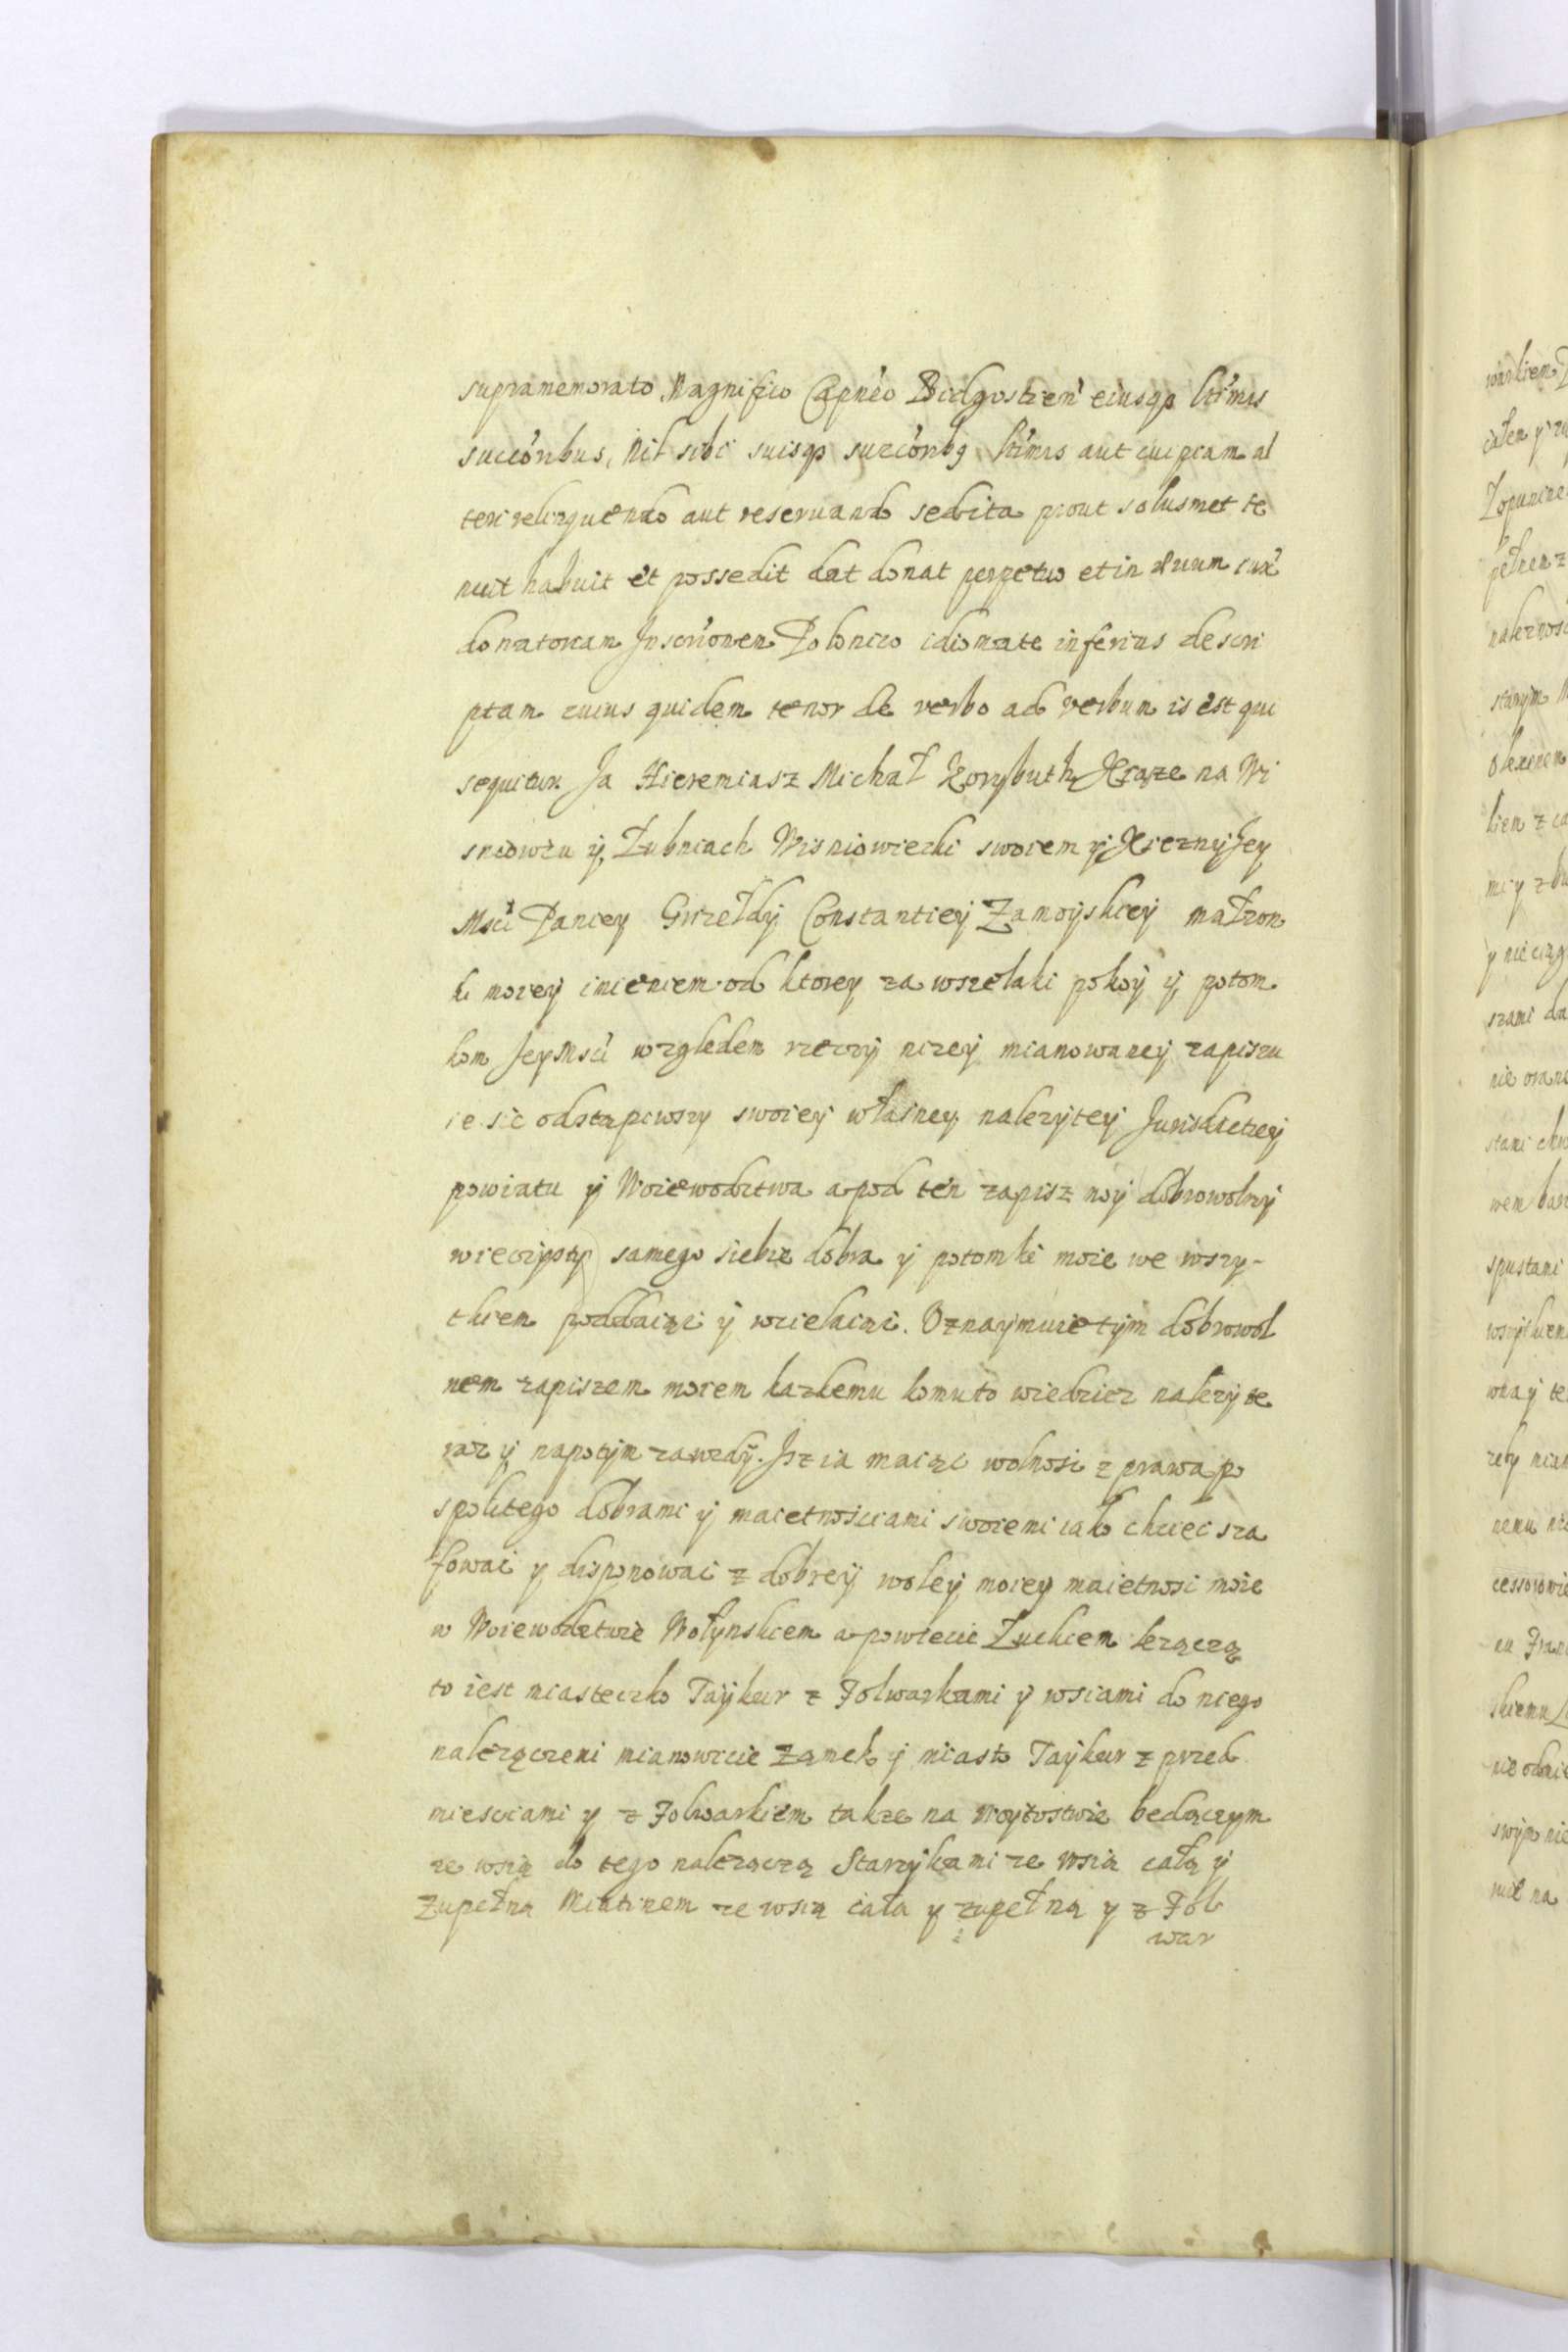 supramemorato Magnifico Capn'eo Bidgostien' eiusqȝ ltt'mis
succ'oribus, Nil sibi suisqȝ succ'oribȝ ltt'mis aut cuipiam al
teri relinquendo aut reservando sed ita prout solusmet te
nuit habuit et possedit dat donat perpetuo et in
donatoriam Inscri'onem Polonico idiomate inferius descri
ptam cuius quidem tenor de verbo ad verbum is est qui
sequitur. Ja Hieremiasz Michał Korybuth Xcąze na Wi
sniowcu y Łubniach Wisniowiecki swoiem y Xieznyi Jey
Msci Paniey Grizełdy Constantiey Zamoyskiey małzon
ki moiey imieniem od ktorey za wszelaki pokoy y potom
kom Jey Msci wzgledem rzeczy nizey mianowaney zapiszu
ie sie odstapiwszy swoiey własney nalezytey Jurisdictiey
powiatu y Woiewodztwa a pod ten zapisz moy dobrowolny
wieczysty samego siebie dobra y potomki moie we wszy-
tkiem poddaiąc y wcielaiąc. Oznaymuie tym dobrowol
nem zapiszem moiem kazdemu komu to wiedziec nalezy te
raz y napotym zawzdy. Jsz ia maiąc wolnosc z prawa po
spolitego dobrami y maietnosciami swoiemi iako chciec sza
fowac y disponowac z dobrey woley moiey maietnosc moie
w Woiewodztwie Wołynskiem a powiecie Łuckiem lezączą
to iest miasteczko Taykur z Folwarkami y wsiami do niego
nalezączemi mianowicie Zamek y miasto Taykur z przed
miesciami y z Folwarkiem takze na woytostwie będączym
ze wsią do tego nalezączą Starzykami ze wsią całą y
Zupełną Miatinem ze wsią cała y zupełną y z Fol
war